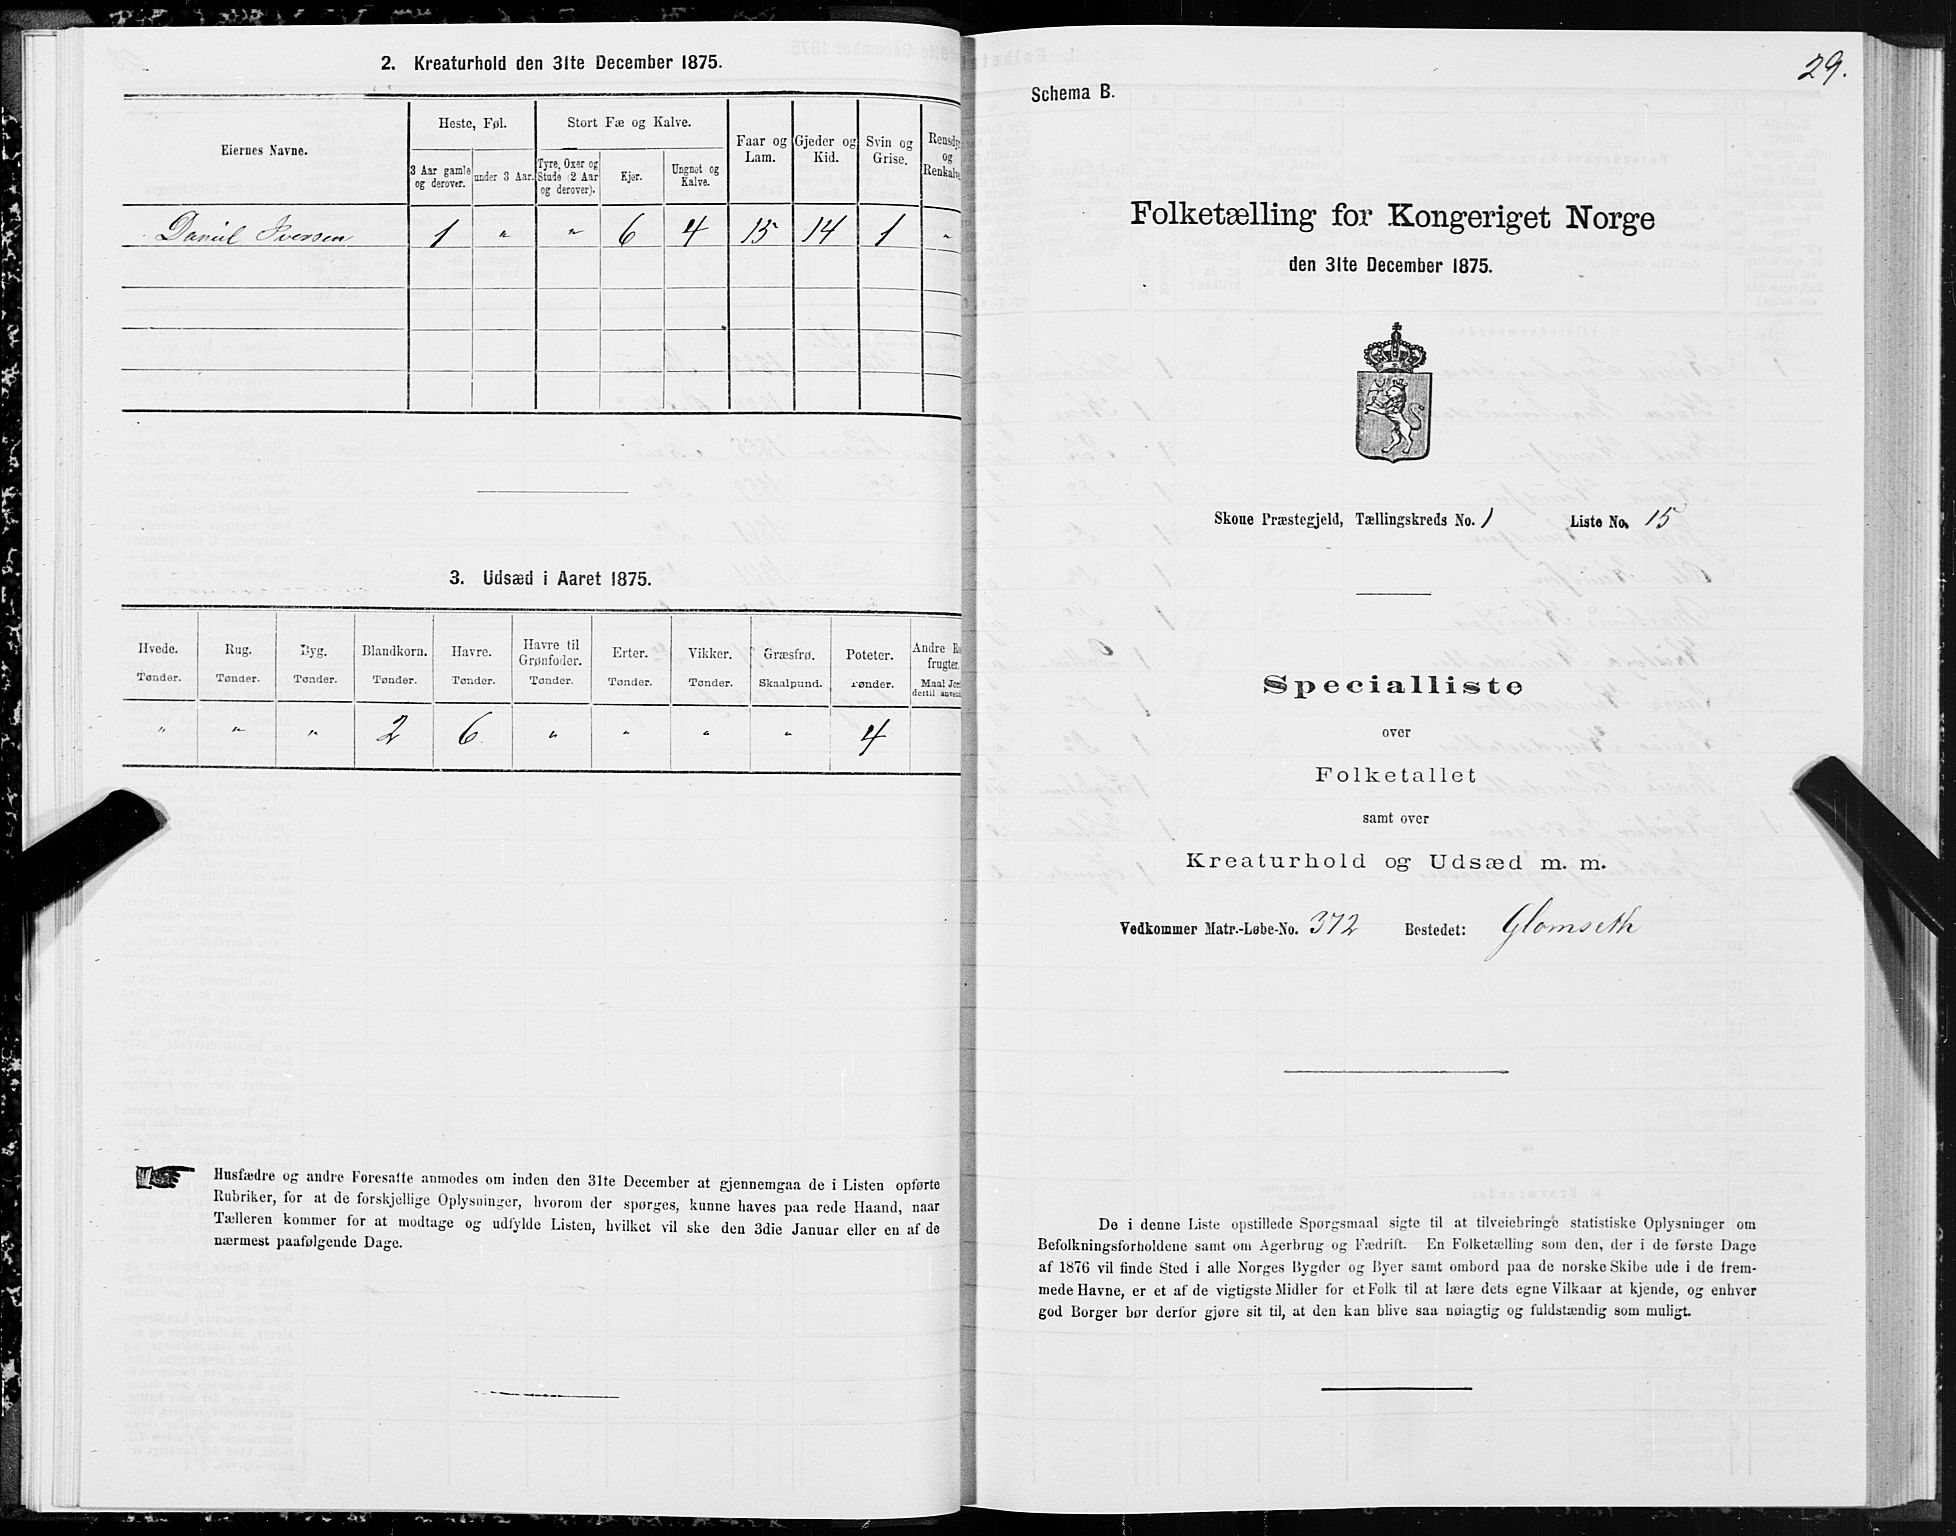 2. Kreaturhold den 31te December 1875.
Eiernes Navne.
Heste, Føl.
3 Aar gamle og derover.
under 3 Aar.
Stort Fæ og Kalve.
Tyre, Oxer og Stude (2 Aar og derover).
Kjør.
Ungnøt og Kalve.
Faar og Lam.
Gjeder og Kid.
Svin og Grise.
Rensdyr og Renkalve
Daniel Iversen 1 " " 6 4 15 14 1 "
3. Udsæd i Aaret 1875.
Hvede. Rug. Byg. Blandkorn. Havre. Havre til Grønfoder. Erter. Vikker. Græsfrø. Poteter. Andre
frugter.
Tønder. Tønder. Tønder. Tønder. Tønder. Tønder. Tønder. Tønder. Skaalpund. Tønder. Maal
dertil
" " " 2 6 " " " " 4
Husfædre og andre Foresatte anmodes om inden den 31te December at gjennemgaa de i Listen opførte
Rubriker, for at de forskjellige Oplysninger, hvorom der spørges, kunne haves paa rede Haand, naar
Tælleren kommer for at modtage og udfylde Listen, hvilket vil ske den 3die Januar eller en af de
nærmest paafølgende Dage.
29.
Schema B.
Folketælling for Kongeriget Norge
den 31te December 1875.
Skoue Præstegjeld, Tællingskreds No. 1 Liste No. 15
Specialliste
over
Folketallet
samt over
Kreaturhold og Udsæd m. m.
Vedkommer Matr.-Løbe-No. 372 Bostedet: Glomseth
De i denne Liste opstillede Spørgsmaal sigte til at tilveiebringe statistiske Oplysninger om
Befolkningsforholdene samt om Agerbrug og Fædrift. En Folketælling som den, der i de første Dage
af 1876 vil finde Sted i alle Norges Bygder og Byer samt ombord paa de norske Skibe ude i de frem-
mede Havne, er et af de vigtigste Midler for et Folk til at lære dets egne Vilkaar at kjende, og enhver
god Borger bør derfor gjøre sit til, at den kan blive saa nøiagtig og fuldstændig som muligt.